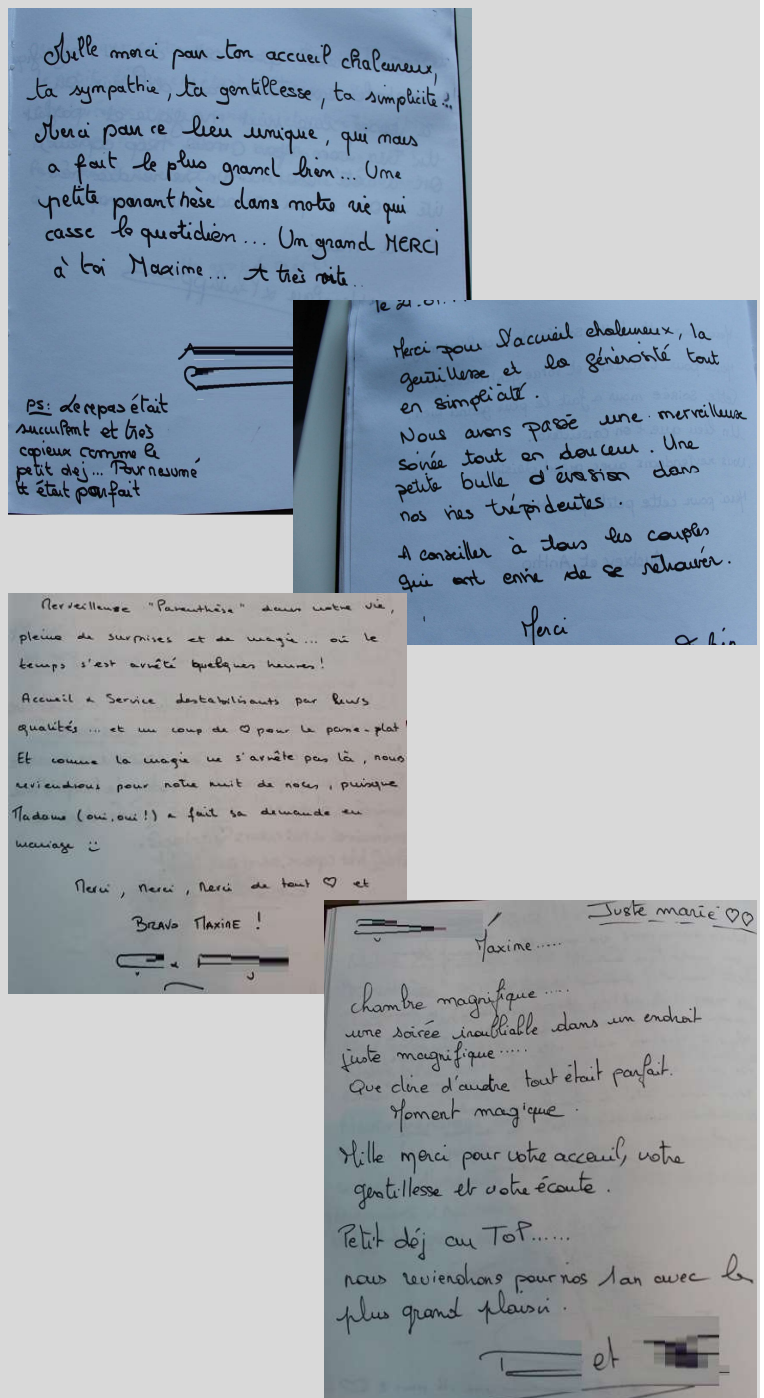 Mille merci pour ton accueil chaleureux,
ta sympathie, ta gentillesse, ta simplicité...
Merci pour ce lieu unique, qui nous
a fait le plus grand bien... Une
petite paranthèse dans notre vie qui
casse le quotidien... Un grand MERCI
à toi Maxime... A très vite..
PS: Le repas était
succulent et très
copieux comme le
petit dej... Pour resumé
tt était parfait
Merci pour l'accueil chaleureux, la
gentillesse et la générosité tout
en simplicité.
Nous avons passé une merveilleux
soirée tout en douceur. Une
petite bulle d'évasion dans
nos vies trépidentes
A conseiller à tous les couples
qui ont envie de se retrouver.
Merci
Merveilleuse "Paranthèse" dans notre vie,
pleine de surprises et de magie... où le
temps s'est arrêté quelques heures!
Accueil & Service destabilisants par leurs
qualités... et un coup de ♡ pour le passe-plat!
Et comme la magie ne s'arrête pas là, nous
reviendrons pour notre nuit de noces, puisque
Madame (oui, oui!) a fait sa demande en
mariage :)
Merci, Merci, Merci de tout ♡ et
BRAVO MAXIME !
&
Juste marié ♡♡
Maxime.....
chambre magnifique.....
une soirée inoubliable dans un endroit
juste magnifique.....
Que dire d'autre tout était parfait.
Moment magique.
Mille merci pour votre acceuil, votre
gentillesse et votre écoute.
Petit déj au TOP......
nous reviendrons pour nos 1an avec le
plus grand plaisir.
et